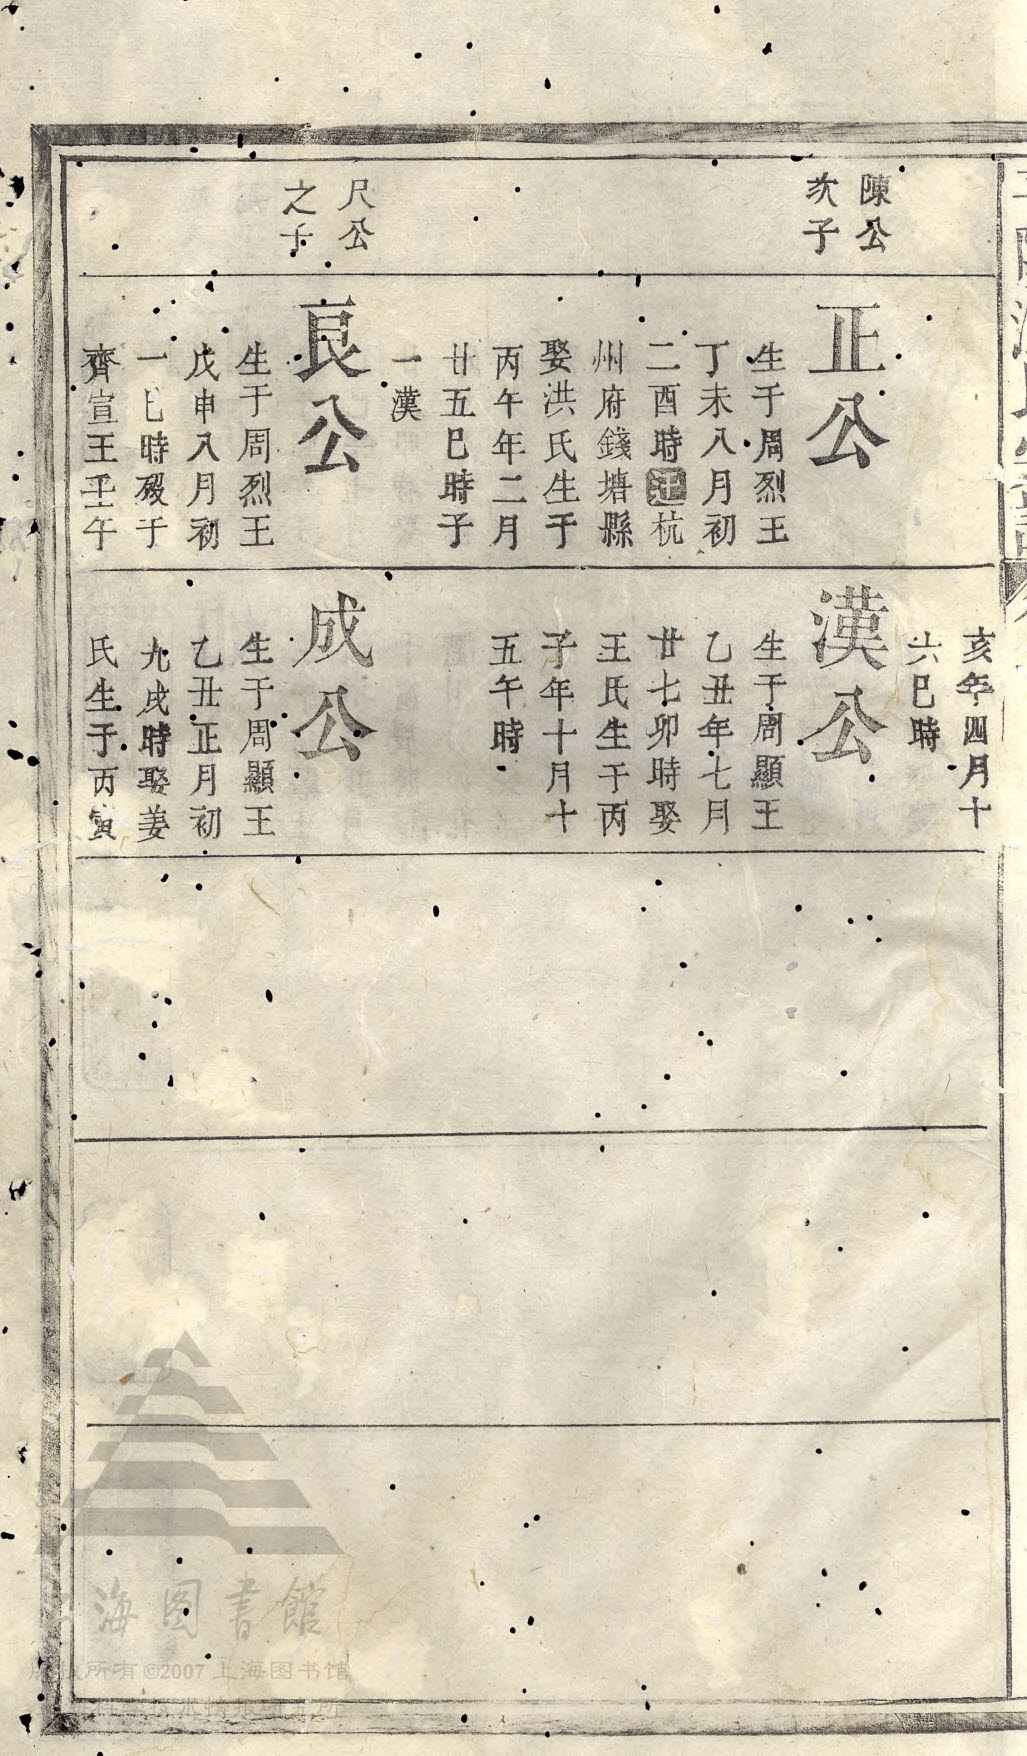 陳公
次子
尺公
之子
正公
生于周烈王
丁未八月初
二酉時迁杭
州府錢塘縣
娶洪氏生于
丙午年二月
廿五巳時子
一漢
良公
生于周烈王
戊申八月初
一巳時歿于
齊宣王壬午
亥年四月十
六巳時
漢公
生于周顯王
乙丑年七月
廿七卯時娶
王氏生于丙
子年十月十
五午時
成公
生于周顯王
乙丑正月初
九戌時娶姜
氏生于丙寅
上海图書館
版权所有©2007 上海图书馆